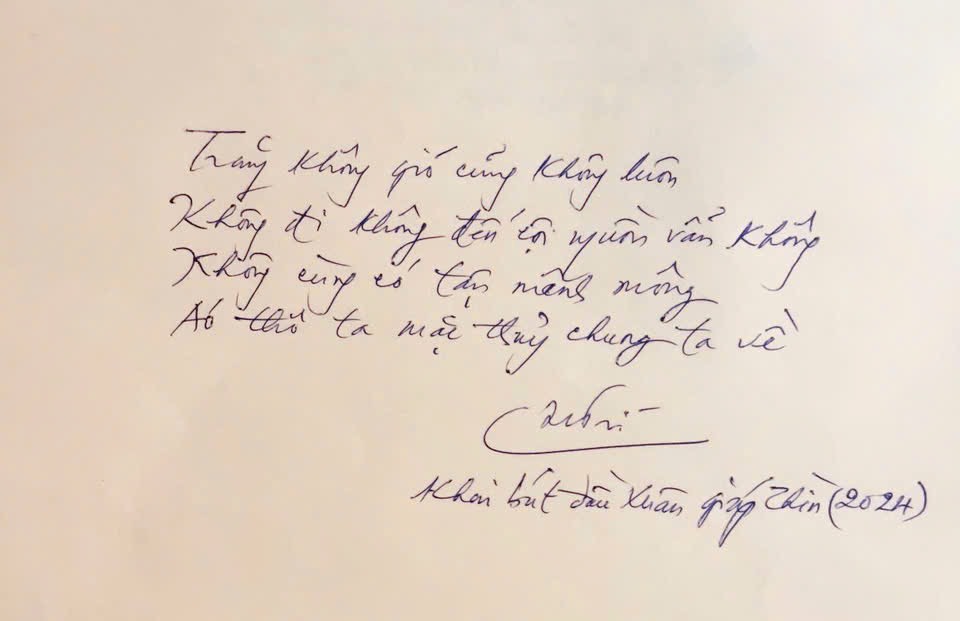 Trăng không gió cũng không luôn
Không đi không đến cội nguồn vẫn không
Không cùng có tận mênh mông
Áo thô ta mặc thủy chung ta về
Khai bút đầu Xuân giáp Thìn (2024)